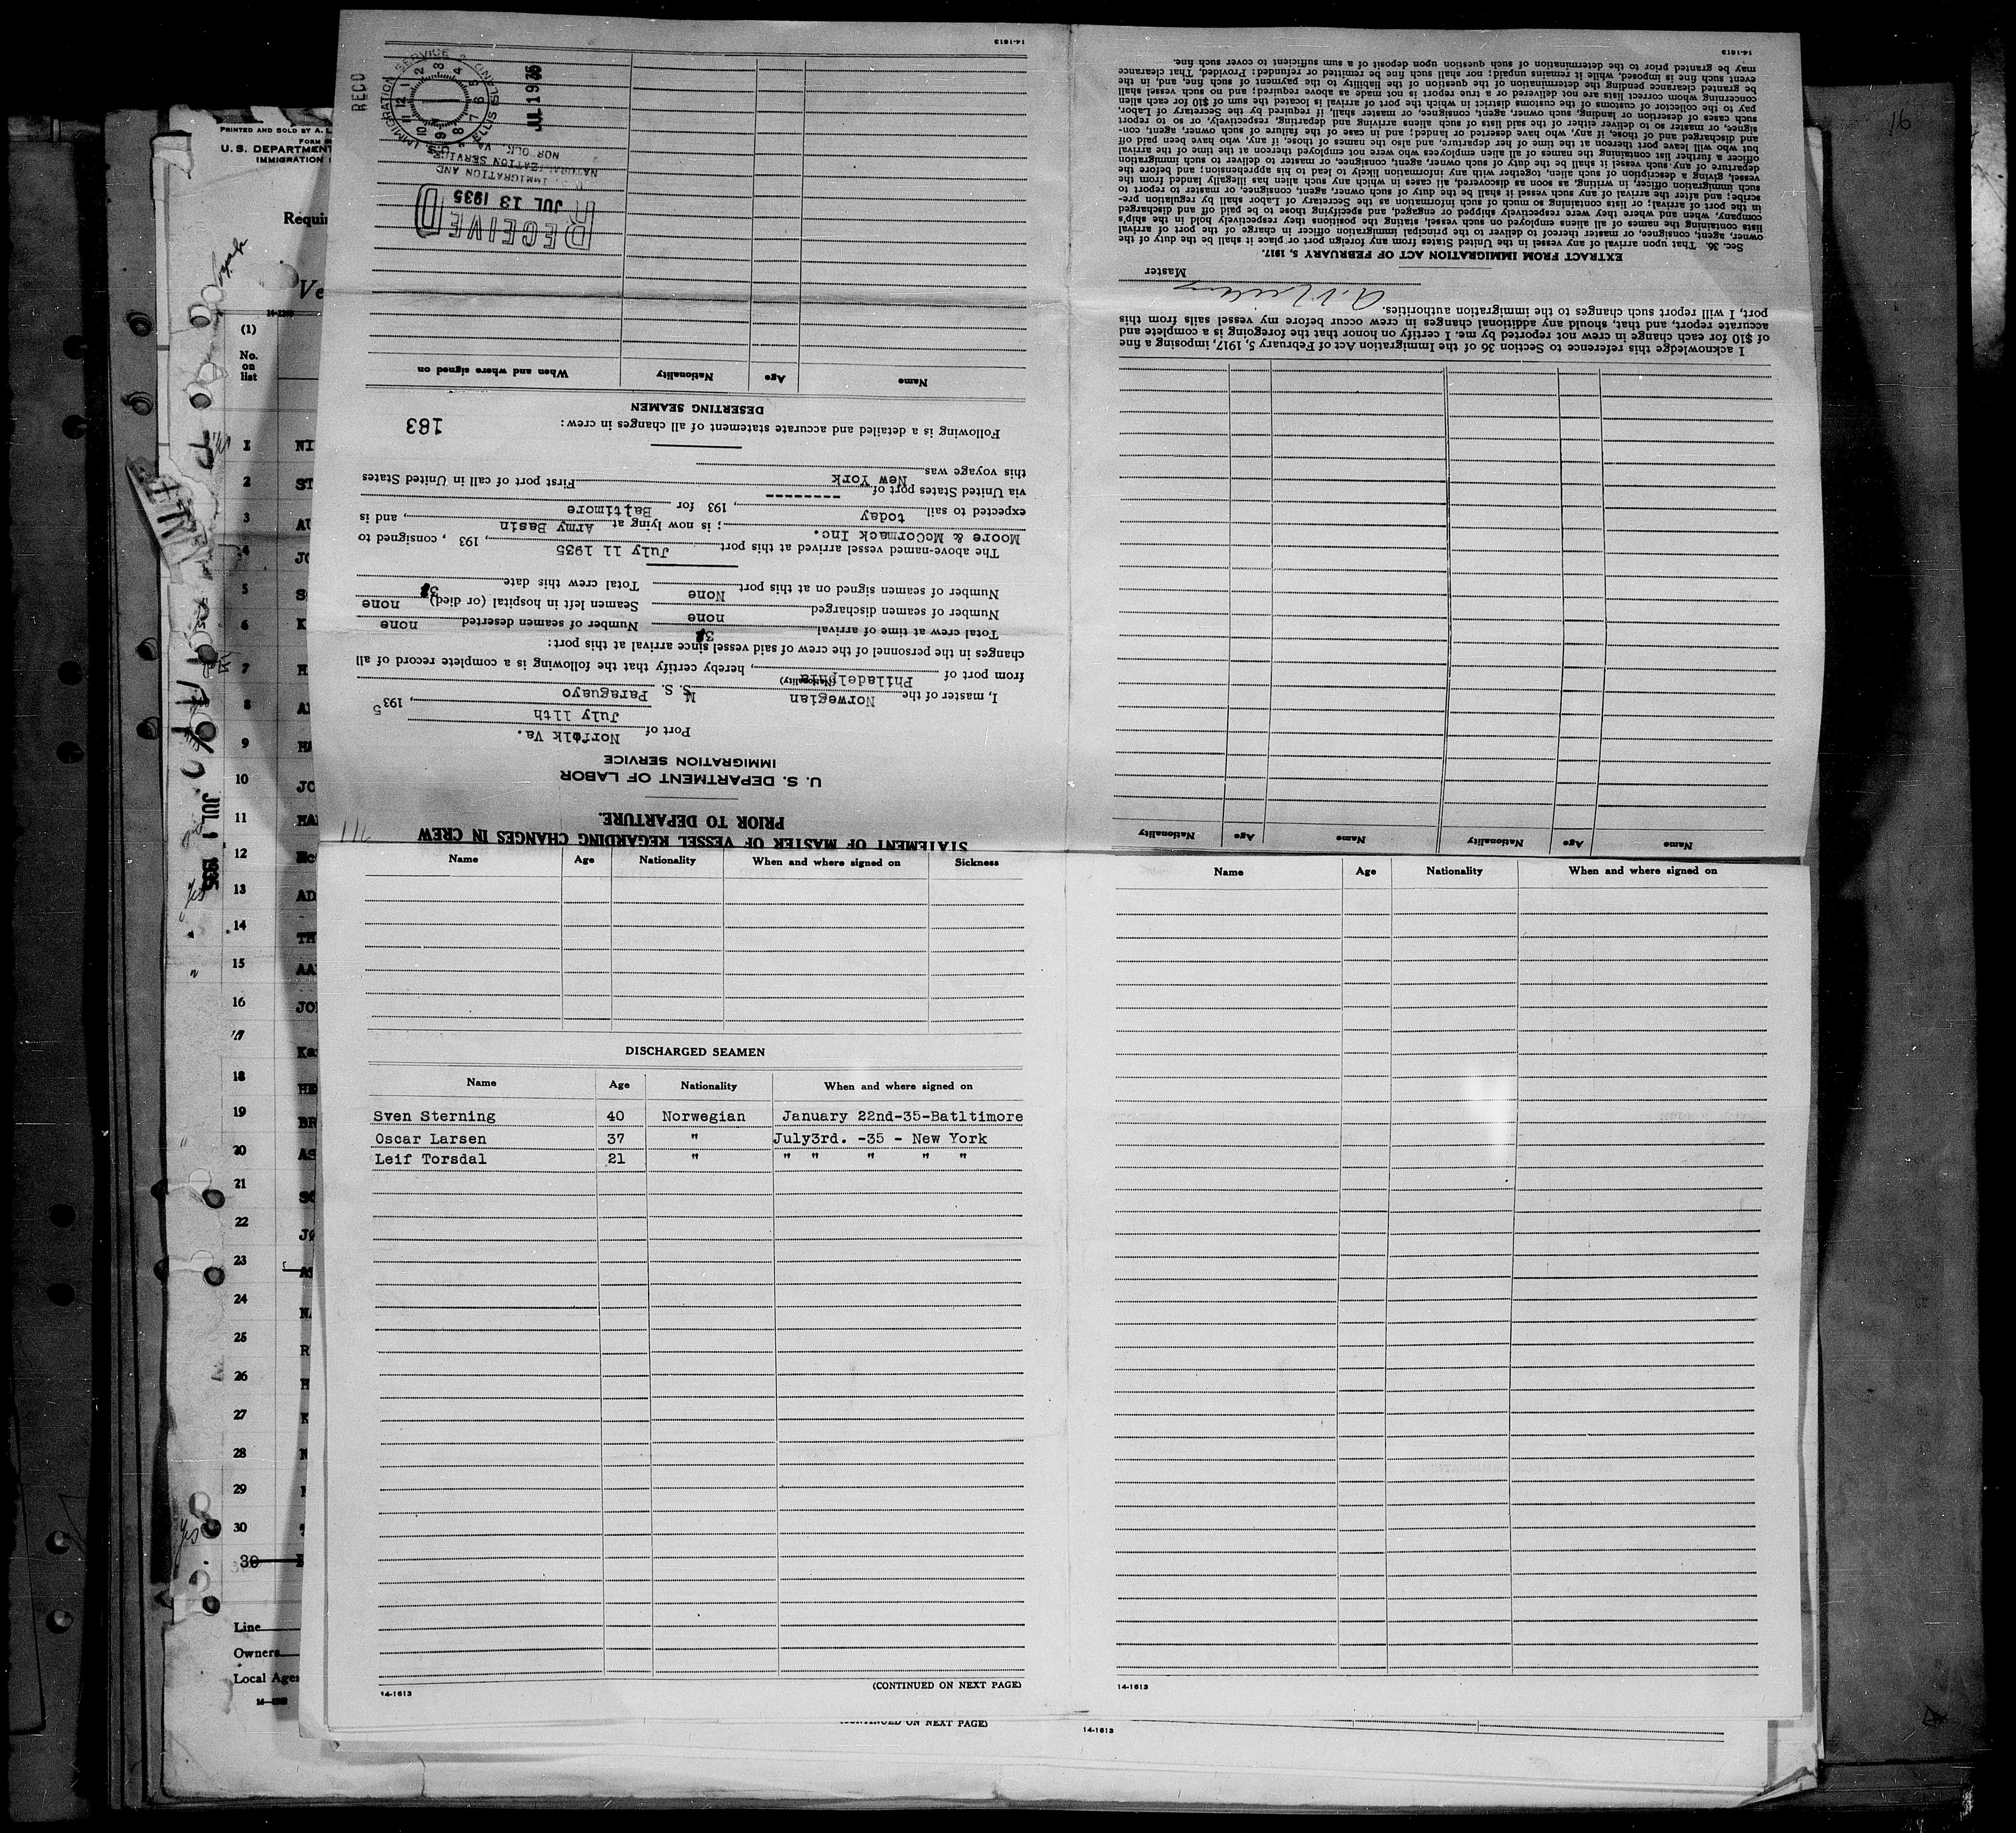 16
PRINTED AND SOLD BY A. L.
FORM
U. S. DEPARTMENT
IMMIGRATION
(1)
No.
on
list
1 NI
2 ST
3 AU
4 JO
5 S
6 K
7 H
8 A
9 HA
10 JO
11 HA
12 Mc
13 AD
14 TH
15 AA
16 JO
17 Ka
18 HE
19 BR
20 AS
21 SO
22 JØ
23
24 N
25 R
26 H
27 K
28 N
29
30
30
JUL 1 1935
yes
yes
Line
Owners
Local Agen
STATEMENT OF MASTER OF VESSEL REGARDING CHANGES IN CREW
PRIOR TO DEPARTURE.
U. S. DEPARTMENT OF LABOR
IMMIGRATION SERVICE
Port of Norfolk Va.
July 11th, 1935
I, master of the Norwegian M S. S. Paraguayo
(Nationality)
from port of Philadelphia, hereby certify that the following is a complete record of all
changes in the personnel of the crew of said vessel since arrival at this port:
Total crew at time of arrival Number of seamen deserted none
Number of seamen discharged none Seamen left in hospital (or died) none
Number of seamen signed on at this port None Total crew this date
The above-named vessel arrived at this port July 11 1935, 193 , consigned to
Moore & McCormack Inc. ; is now lying at Army Basin, and is
expected to sail today, 193 for Baltimore
via United States port of -------- First port of call in United States
this voyage was New York
Following is a detailed and accurate statement of all changes in crew: 183
DESERTING SEAMEN
Name Age Nationality When and where signed on
RECEIVED
JUL 13 1935
IMMIGRATION AND
NATURALIZATION SERVICE
NORFOLK, VA.
RECD
IMMIGRATION SERVICE
ELLIS ISLAND
JUL 1935
14-1613
Name Age Nationality Name Age Nationality
I acknowledge this reference to Section 36 of the Immigration Act of February 5, 1917, imposing a fine
of $10 for each change in crew not reported by me. I certify on honor that the foregoing is a complete and
accurate report, and that, should any additional changes in crew occur before my vessel sails from this
port, I will report such changes to the immigration authorities.
Master
EXTRACT FROM IMMIGRATION ACT OF FEBRUARY 5, 1917.
Sec. 36. That upon arrival of any vessel in the United States from any foreign port or place it shall be the duty of the
owner, agent, consignee, or master thereof to deliver to the principal immigration officer in charge of the port of arrival
lists containing the names of all aliens employed on such vessel, stating the positions they respectively hold in the ship's
company, when and where they were respectively shipped or engaged, and specifying those to be paid off and discharged
in the port of arrival; or lists containing so much of such information as the Secretary of Labor shall by regulation pre-
scribe; and after the arrival of any such vessel it shall be the duty of such owner, agent, consignee, or master to report to
such immigration officer, in writing, as soon as discovered, all cases in which any such alien has illegally landed from the
vessel, giving a description of such alien, together with any information likely to lead to his apprehension; and before the
departure of any such vessel it shall be the duty of such owner, agent, consignee, or master to deliver to such immigration
officer a further list containing the names of all alien employees who were not employed thereon at the time of the arrival
but who will leave port thereon at the time of her departure, and also the names of those, if any, who have been paid off
and discharged and of those, if any, who have deserted or landed; and in case of the failure of such owner, agent, con-
signee, or master so to deliver either of the said lists of such aliens arriving and departing, respectively, or so to report
such cases of desertion or landing, such owner, agent, consignee, or master shall, if required by the Secretary of Labor,
pay to the collector of customs of the customs district in which the port of arrival is located the sum of $10 for each alien
concerning whom correct lists are not delivered or a true report is not made as above required; and no such vessel shall
be granted clearance pending the determination of the question of the liability to the payment of such fine, and, in the
event such fine is imposed, while it remains unpaid; nor shall such fine be remitted or refunded: Provided, That clearance
may be granted prior to the determination of such question upon deposit of a sum sufficient to cover such fine.
14-1613
Name Age Nationality When and where signed on Sickness
DISCHARGED SEAMEN
Name Age Nationality When and where signed on
Sven Sterning 40 Norwegian January 22nd-35-Batltimore
Oscar Larsen 37 " July3rd. -35 - New York
Leif Torsdal 21 " " " " " "
(CONTINUED ON NEXT PAGE)
14-1613
Name Age Nationality When and where signed on
14-1613
(CONTINUED ON NEXT PAGE)
14-1613